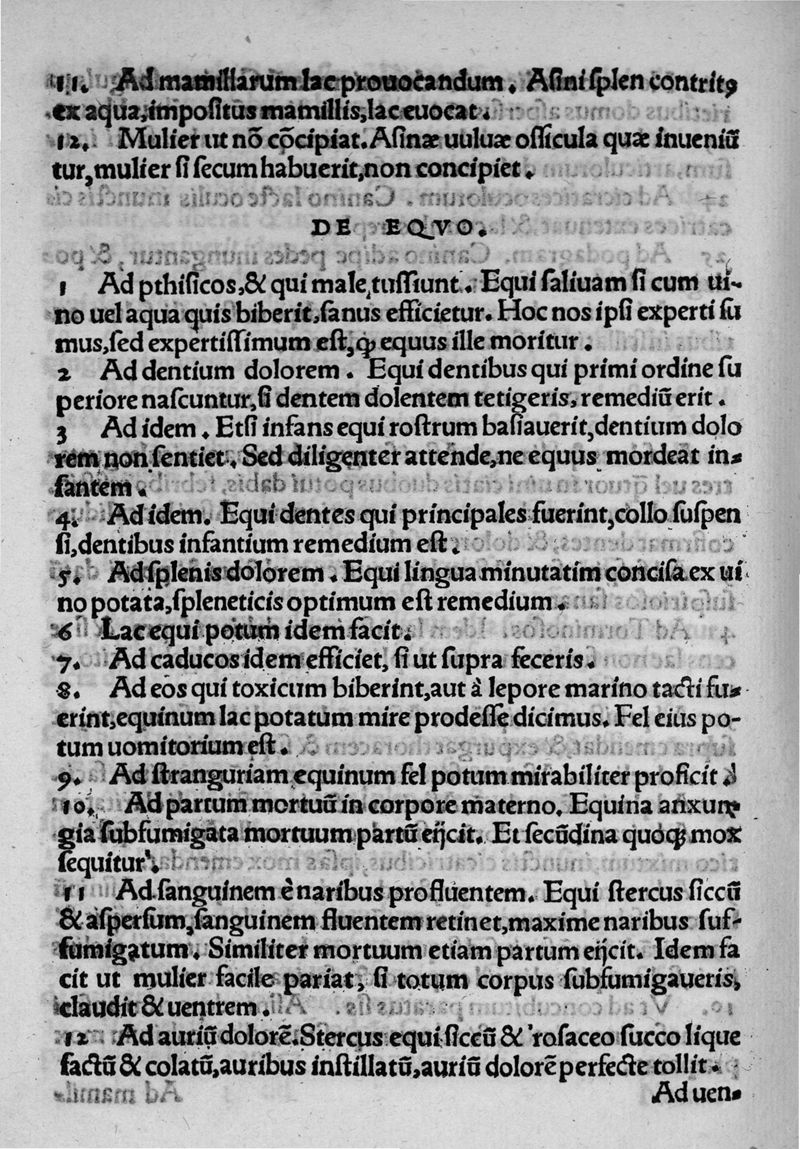 11. Ad mamillarum lac prouocandum. Aſini ſplen contritꝯ
ex aqua, impoſitus mamillis, lac euocat.
12. Mulier ut nō cōcipiat. Aſinæ uuluæ oſſicula quæ inueniū
tur, mulier ſi ſecum habuerit, non concipiet.
DE EQVO.
1 Ad pthiſicos, & qui male tuſſiunt. Equi ſaliuam ſi cum ui-
no uel aqua quis biberit, ſanus efficietur. Hoc nos ipſi experti ſu
mus, ſed expertiſſimum eſt, ꝙ equus ille moritur.
2 Ad dentium dolorem. Equi dentibus qui primi ordine ſu
periore naſcuntur, ſi dentem dolentem tetigeris, remediū erit.
3 Ad idem. Etſi infans equi roſtrum baſiauerit, dentium dolo
rem non ſentiet. Sed diligenter attende, ne equus mordeat in-
fantem.
4. Ad idem. Equi dentes qui principales fuerint, collo ſuſpen
ſi, dentibus infantium remedium eſt.
5. Ad ſplenis dolorem. Equi lingua minutatim conciſa ex ui
no potata, ſpleneticis optimum eſt remedium.
6 Lac equi potum idem facit.
7. Ad caducos idem efficiet, ſi ut ſupra feceris.
8. Ad eos qui toxicum biberint, aut à lepore marino tacti fu-
erint, equinum lac potatum mire prodeſſe dicimus. Fel eius po-
tum uomitorium eſt.
9. Ad ſtranguriam equinum fel potum mirabiliter proficit.
10. Ad partum mortuū in corpore materno. Equina anxun
gia ſubfumigata mortuum partū eijcit. Et ſecūdina quoqꝫ mox
ſequitur.
11 Ad ſanguinem è naribus profluentem. Equi ſtercus ſiccū
& aſperſum, ſanguinem fluentem retinet, maxime naribus ſuf-
fumigatum. Similiter mortuum etiam partum eijcit. Idem fa
cit ut mulier facile pariat, ſi totum corpus ſubfumigaueris,
claudit & uentrem.
12 Ad auriū dolorē. Stercus equi ſiccū & roſaceo ſucco lique
factū & colatū, auribus inſtillatū, auriū dolorē perfecte tollit.
Ad uen-